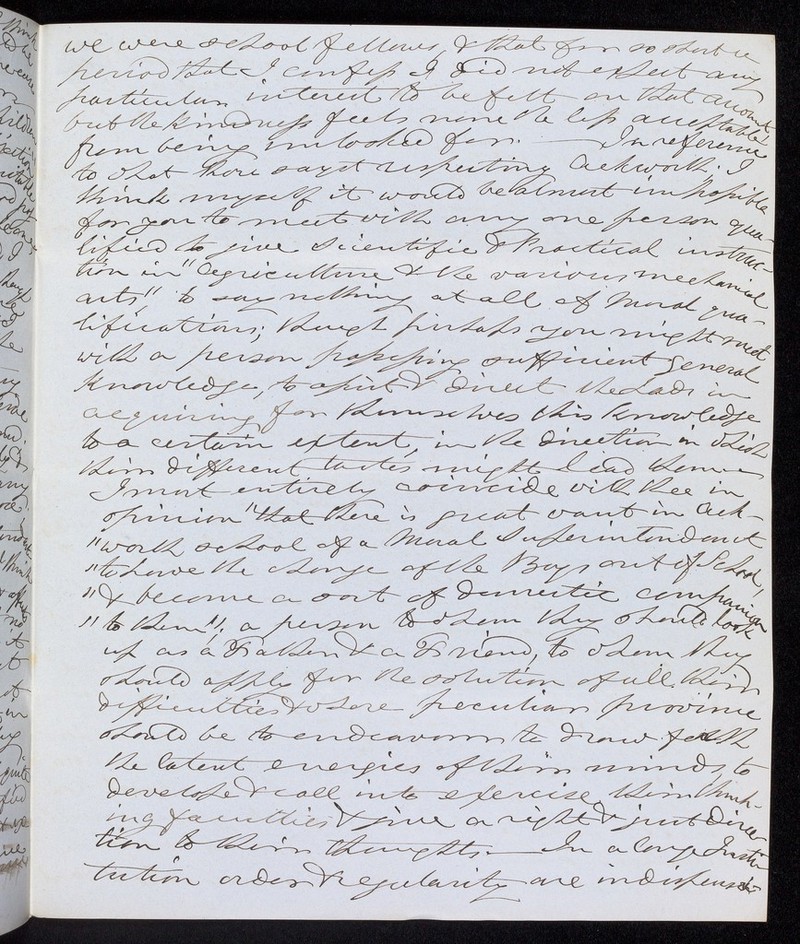 we were school fellows, & that for so short a
period that I confess I did not expect any
particular interest to be felt on that account
but the kindness feels none the less acceptable
from being unlooked for. — In reference
to what thou sayst respecting Ackworth, I
think myself it would be almost impossible
for you to meet with any one person qua-
lified to give Scientific & Practical instruc-
tion in "Agriculture & the various mechanical
arts", to say nothing at all of Moral qua-
lifications; though perhaps you might meet
with a person possessing sufficient general
Knowledge, to assist & direct the Lads in
acquiring for themselves this Knowledge
to a certain extent, in the direction in which
their different tastes might lead them —
I most entirely coincide with thee in
opinion "that there is great want in Ack-
"worth school of a Moral Superintendent
"to have the charge of the Boys out of School,
"& become a sort of domestic companion
"to them"; a person to whom they should look
up as a Father & a Friend, to whom they
should apply for the solution of all their
difficulties & whose peculiar province
should be to endeavour to draw forth
the latent energies of their minds, to
develope & call into exercise their think-
ing faculties & give a right & just direc-
tion to their thoughts. — In a large Insti-
tution order & regularity are indispensi-